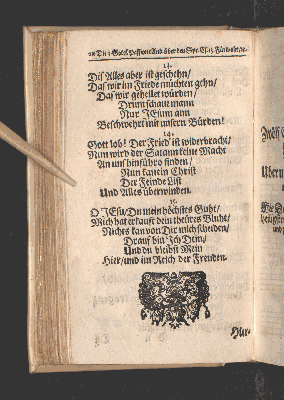 13.
Diß Alles aber ist geschehn/
Daß wir im Friede möchten gehn/
Daß wir geheilet würden/
Drum schaue man
Nur JEsum an
Beschwehrt mit unsern Bürden!
14.
Gott lob! Der Fried' ist widerbracht/
Nun wird der Satan keine Macht
An uns hinführo finden/
Nun kan ein Christ
Der Feinde List
Und Alles überwinden.
15.
O JEsu/ Du mein höchstes Guht/
Mich hat erkauft dein theüres Bluht/
Nichtes kan von Dir mich scheiden/
Drauf bin Ich Dein/
Und du bleibst Mein
Hier/ und im Reich der Freuden.